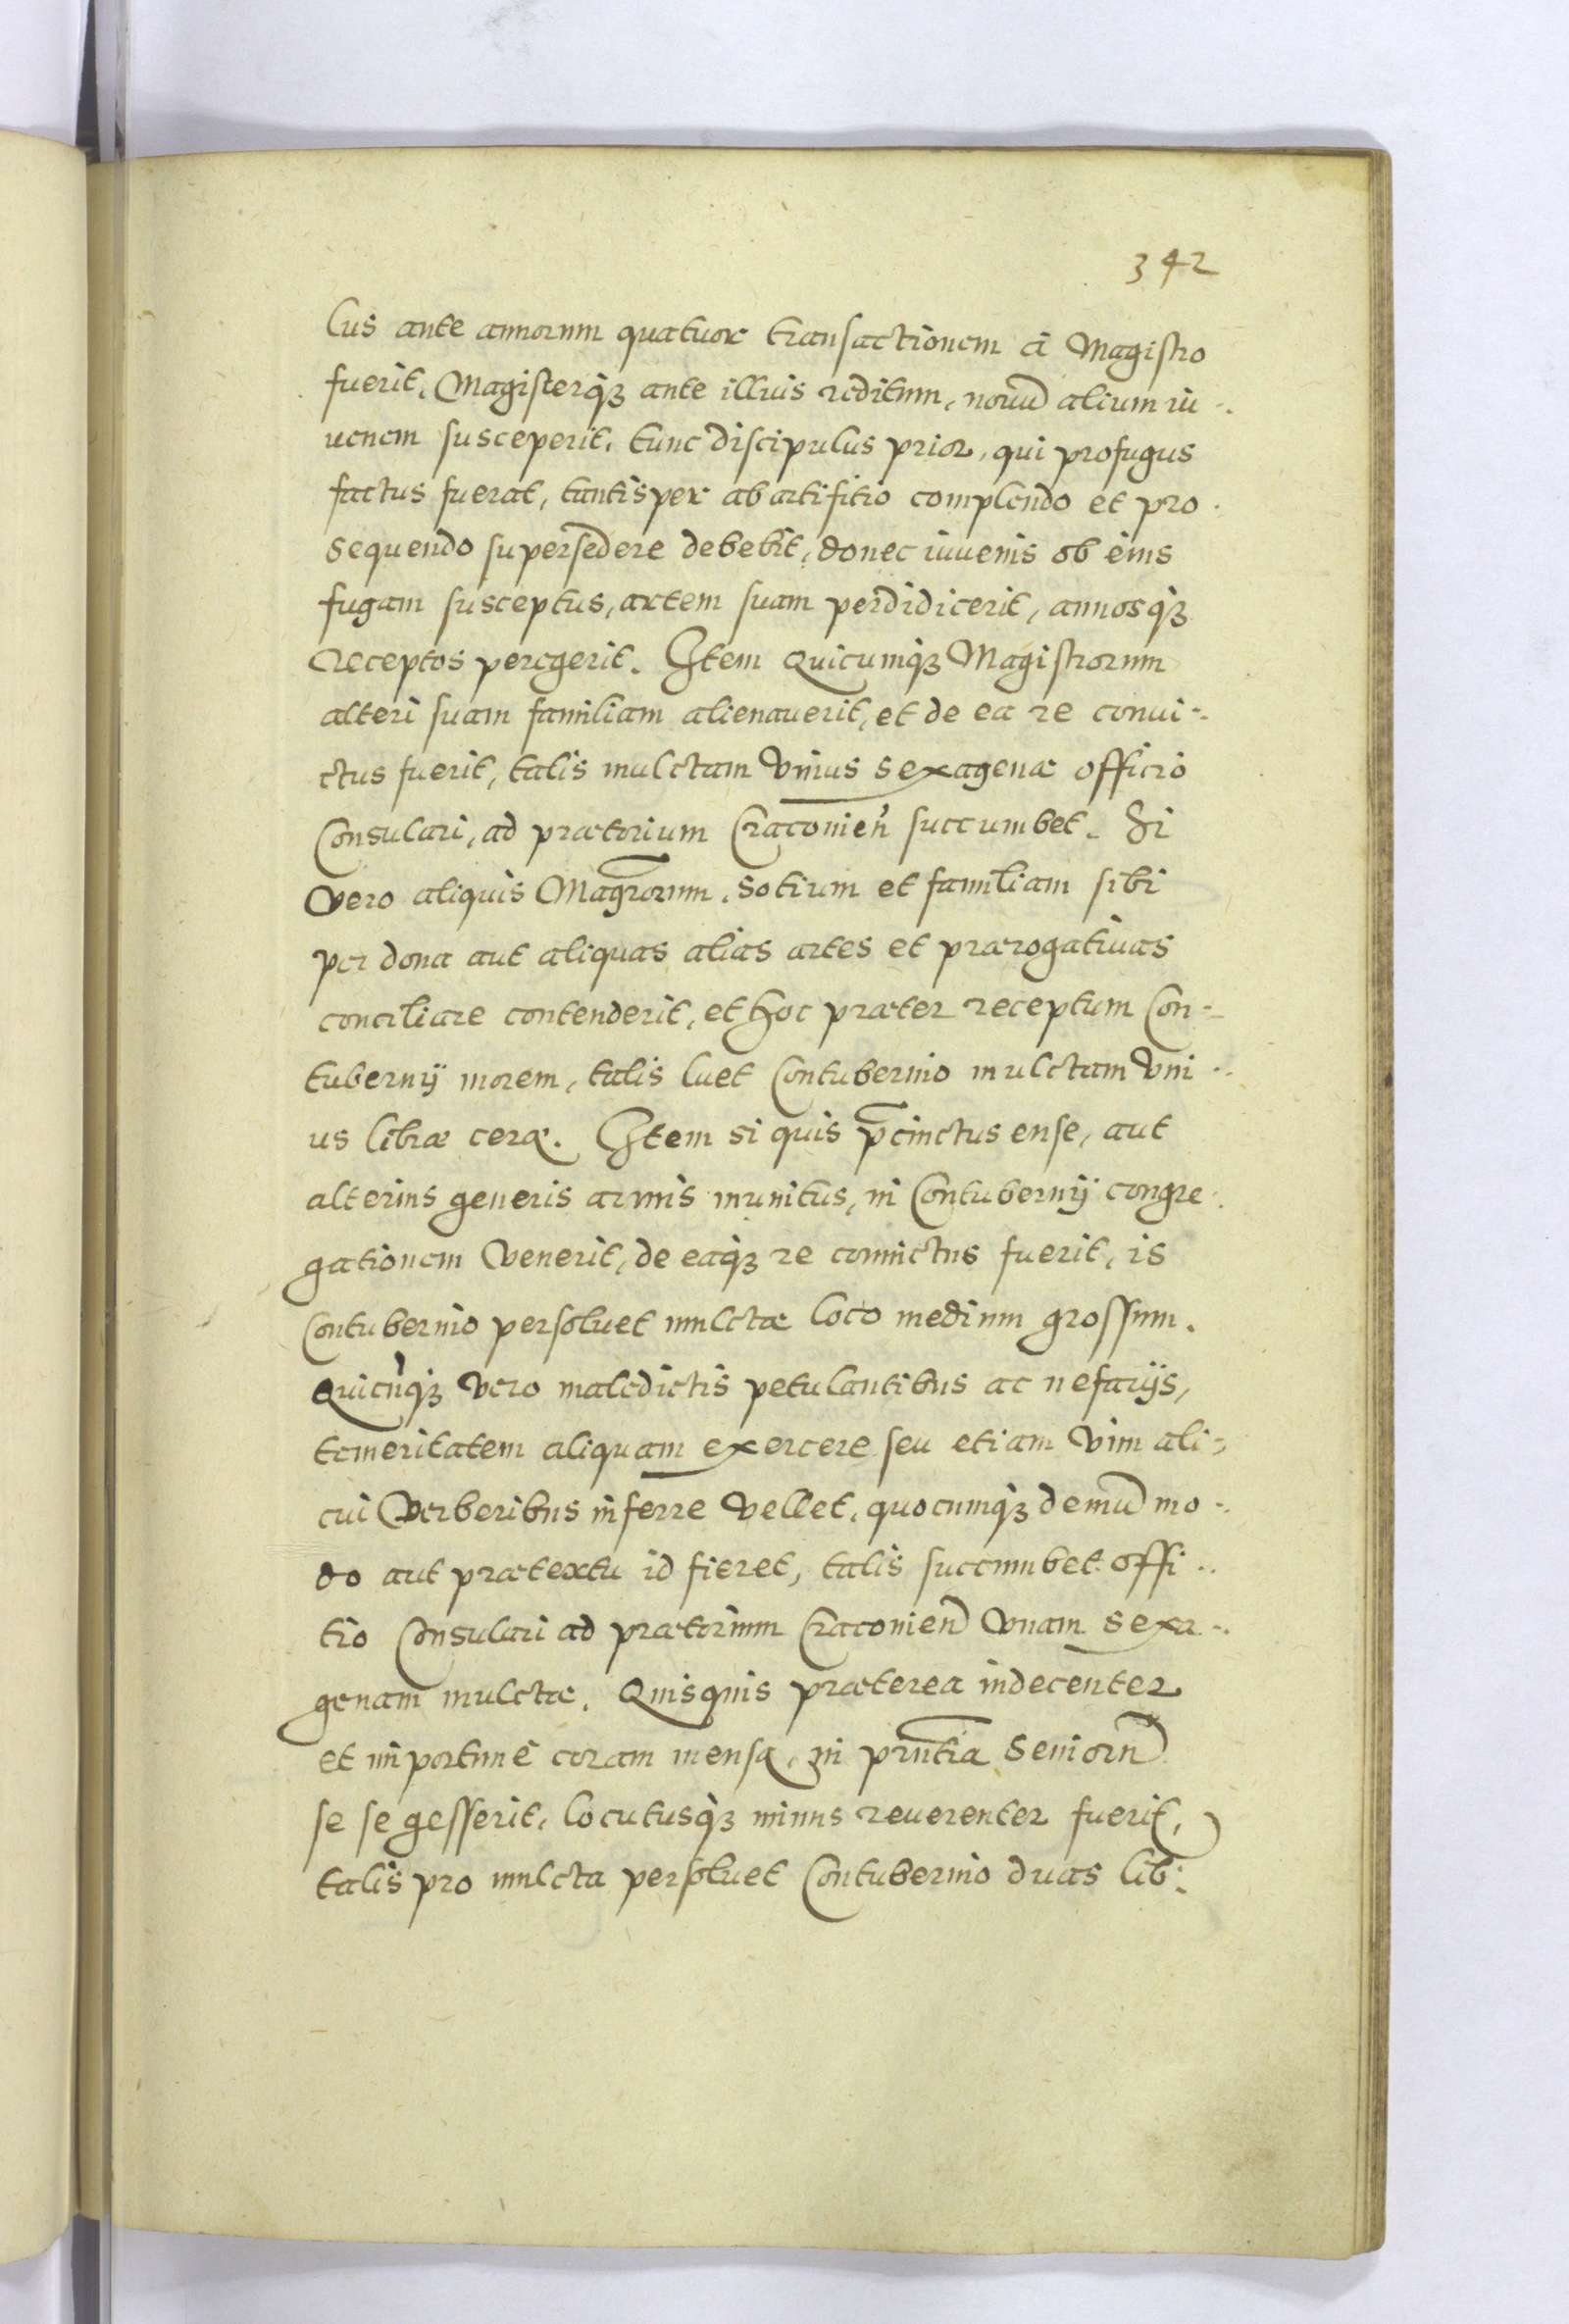 342
lus ante annorum quatuor transactionem à Magistro
fuerit. Magisterq̃ꝫ ante illius reditum, nouũ alium iu-
uenem susceperit, tunc discipulus prior, qui profugus
factus fuerat, tantisper ab artifitio complendo et pro-
sequendo supersedere debebit, donec iuuenis ob eius
fugam susceptus, artem suam perdidicerit, annosq̃ꝫ
receptos peregerit. Item Quicumq̃ꝫ Magistrorum
alteri suam familiam alienauerit, et de ea re conui-
ctus fuerit, talis mulctam vnius sexagenæ officio
Consulari, ad prætorium Cracouien̄ succumbet. Si
vero aliquis Magr̄orum, sotium et familiam sibi
per dona aut aliquas alias artes et prærogatiuas
conciliare contenderit, et hoc præter receptum Con-
tubernij morem, talis luet Contubernio mulctam vni-
us libræ ceræ. Item si quis p̄cinctus ense, aut
alterius generis armis munitus, in Contubernij congre-
gationem venerit, de eaq̃ꝫ re conuictus fuerit, is
Contubernio persoluet mulctæ loco medium grossum.
Quicũq̃ꝫ vero maledictis petulantibus ac nefarijs,
temeritatem aliquam exercere seu etiam vim ali-
cui verberibus inferre vellet, quocumq̃ꝫ demũ mo-
do aut prætextu id fieret, talis succumbet offi-
tio Consulari ad prætorium Cracouien̄ vnam sexa-
genam mulctæ. Quisquis præterea indecenter
et importunè coram mensa, in pr̄ntia Seniorũ
se se gesserit, locutusq̃ꝫ minus reuerenter fuerit,
talis pro mulcta persoluet Contubernio duas lib: